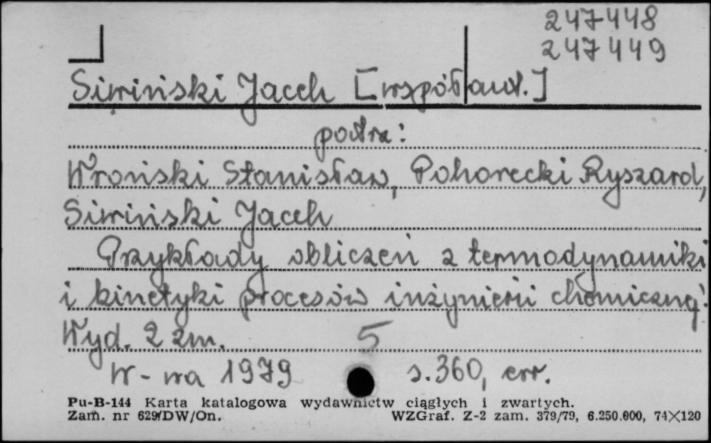 247448
247449
Siwiński Jacek [współaut.]
patrz:
Wroński Stanisław, Pohorecki Ryszard,
Siwiński Jacek
Przykłady obliczeń z termodynamiki
i kinetyki procesów inżynierii chemicznej.
Wyd. 2 zm. 5
W-wa 1979 s.360, err.
Pu-B-144 Karta katalogowa wydawnictw ciągłych i zwartych.
Zam. nr 629/DW/On. WZGraf. Z-2 zam. 379/79, 6.250.000, 74×120